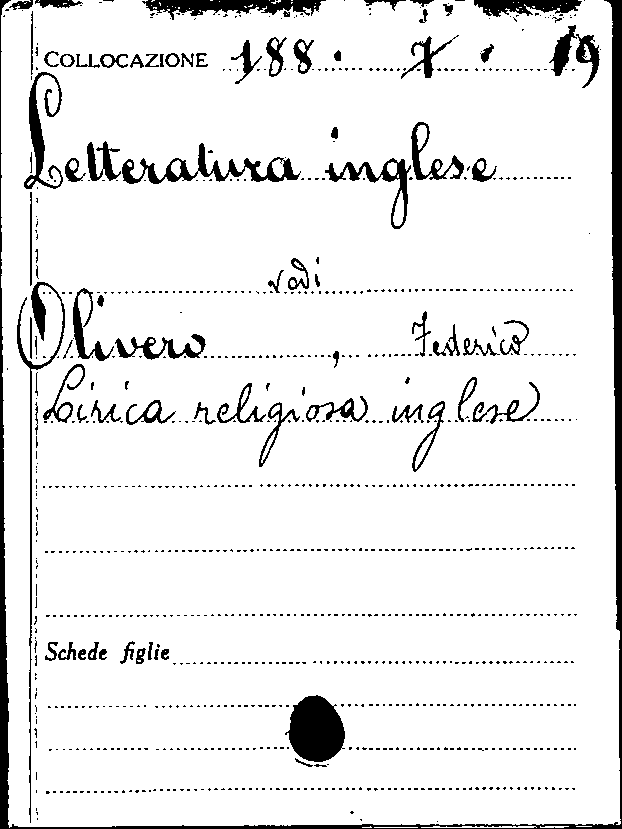 COLLOCAZIONE 188 · 7 · 19
Letteratura inglese
vedi
Olivero, Federico
Lirica religiosa inglese
Schede figlie